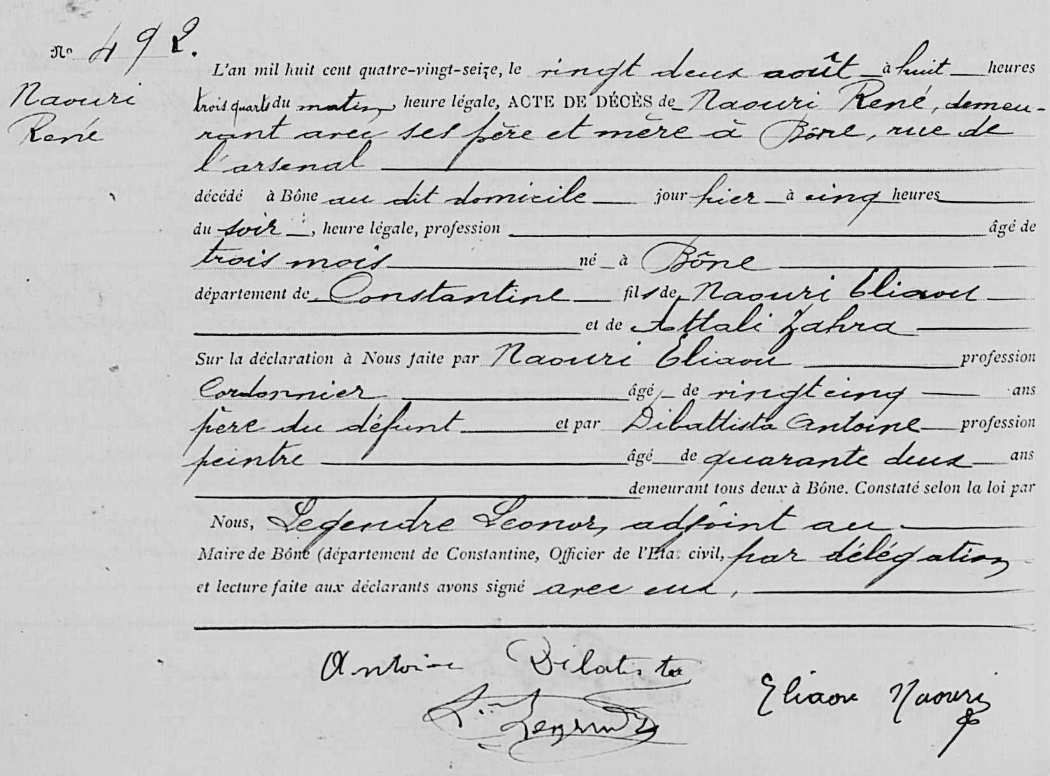 No 492.
Naouri
René
L'an mil huit cent quatre-vingt-seize, le vingt deux août à huit heures
trois quarts du matin, heure légale, ACTE DE DÉCÈS de Naouri René, demeu-
rant avec ses père et mère à Bône, rue de
l'arsenal
décédé à Bône au dit domicile jour hier à cinq heures
du soir, heure légale, profession âgé de
trois mois né à Bône
département de Constantine fils de Naouri Eliaou
et de Attali Zahra
Sur la déclaration à Nous faite par Naouri Eliaou profession
Cordonnier âgé de vingt cinq ans
père du défunt et par Dibattista Antoine profession
peintre âgé de quarante deux ans
demeurant tous deux à Bône. Constaté selon la loi par
Nous, Legendre Leonor, adjoint au
Maire de Bône (département de Constantine, Officier de l'Etat civil, par délégation
et lecture faite aux déclarants avons signé avec eux,
Antoine Dibatista
Legendre
Eliaou Naouri